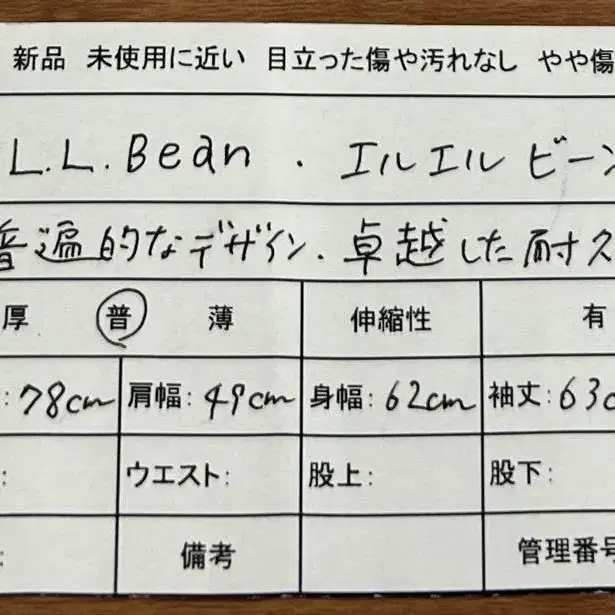 新品 未使用に近い 目立った傷や汚れなし やや傷
L.L.Bean . エルエル ビーン
普遍的なデザイン. 卓越した耐久
厚 普 薄 伸縮性 有
:78cm 肩幅:49cm 身幅:62cm 袖丈:63c
: ウエスト: 股上: 股下:
: 備考 管理番号